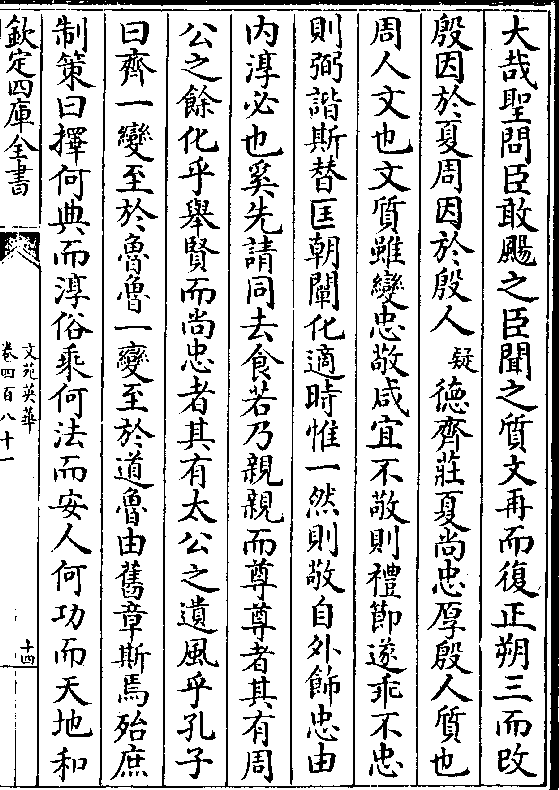 大哉聖問臣敢颺之臣聞之質文再而復正朔三而改
殷因於夏周因於殷人疑德齊莊夏尚忠厚殷人質也
周人文也文質雖變忠敬咸宜不敬則禮節遂乖不忠
則弼諧斯替匡朝闡化適時惟一然則敬自外飾忠由
内淳必也奚先請同去食若乃親親而尊尊者其有周
公之餘化乎舉賢而尚忠者其有太公之遺風乎孔子
曰齊一變至於魯魯一變至於道魯由舊章斯焉殆庶
制策曰擇何典而淳俗乘何法而安人何功而天地和
欽定四庫全書
文苑英華
卷四百八十一
十四